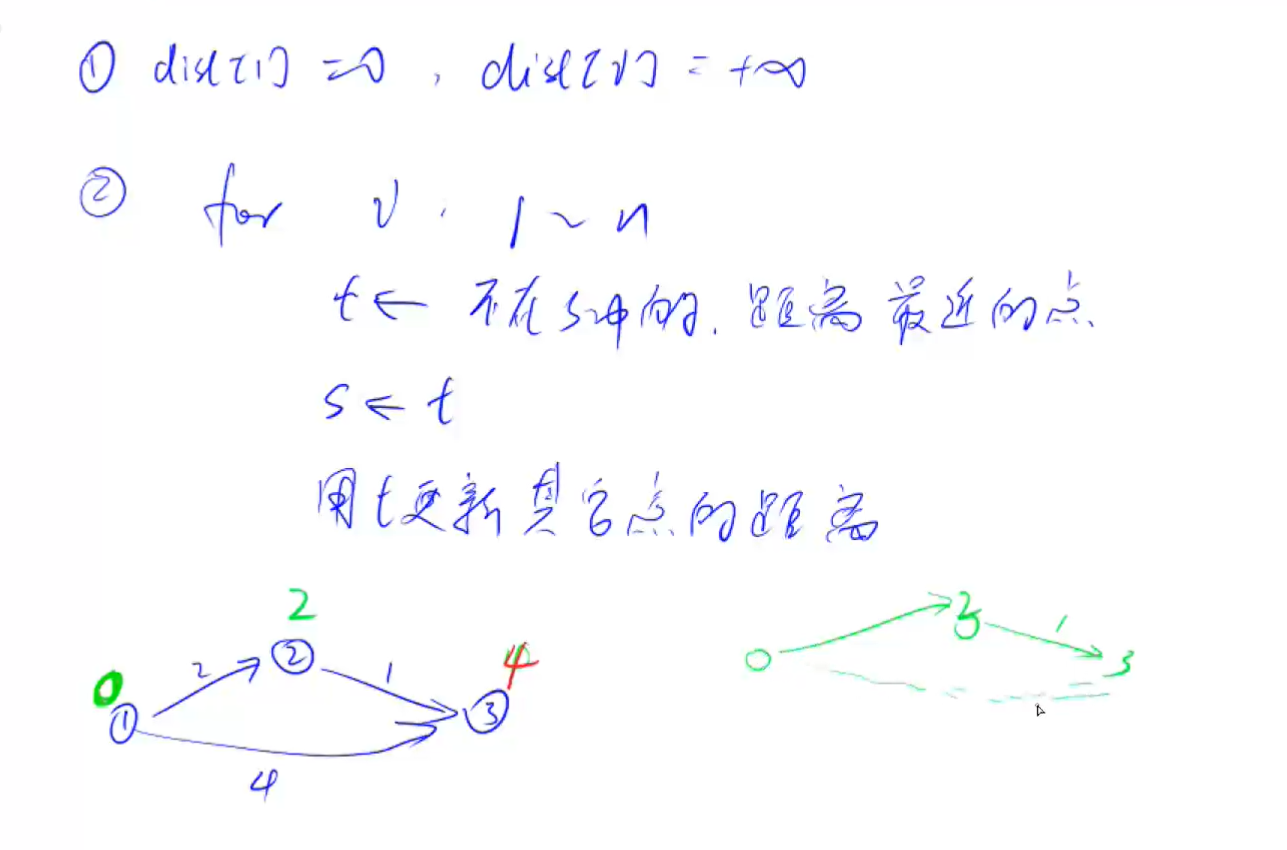 ① dist[1] = 0, dist[v] = +∞
② for v: 1 ~ n
t ← 不在s中的, 距离最近的点.
s ← t
用t更新其它点的距离
2
2
②
1
4
0
①
③
4
2
1
3